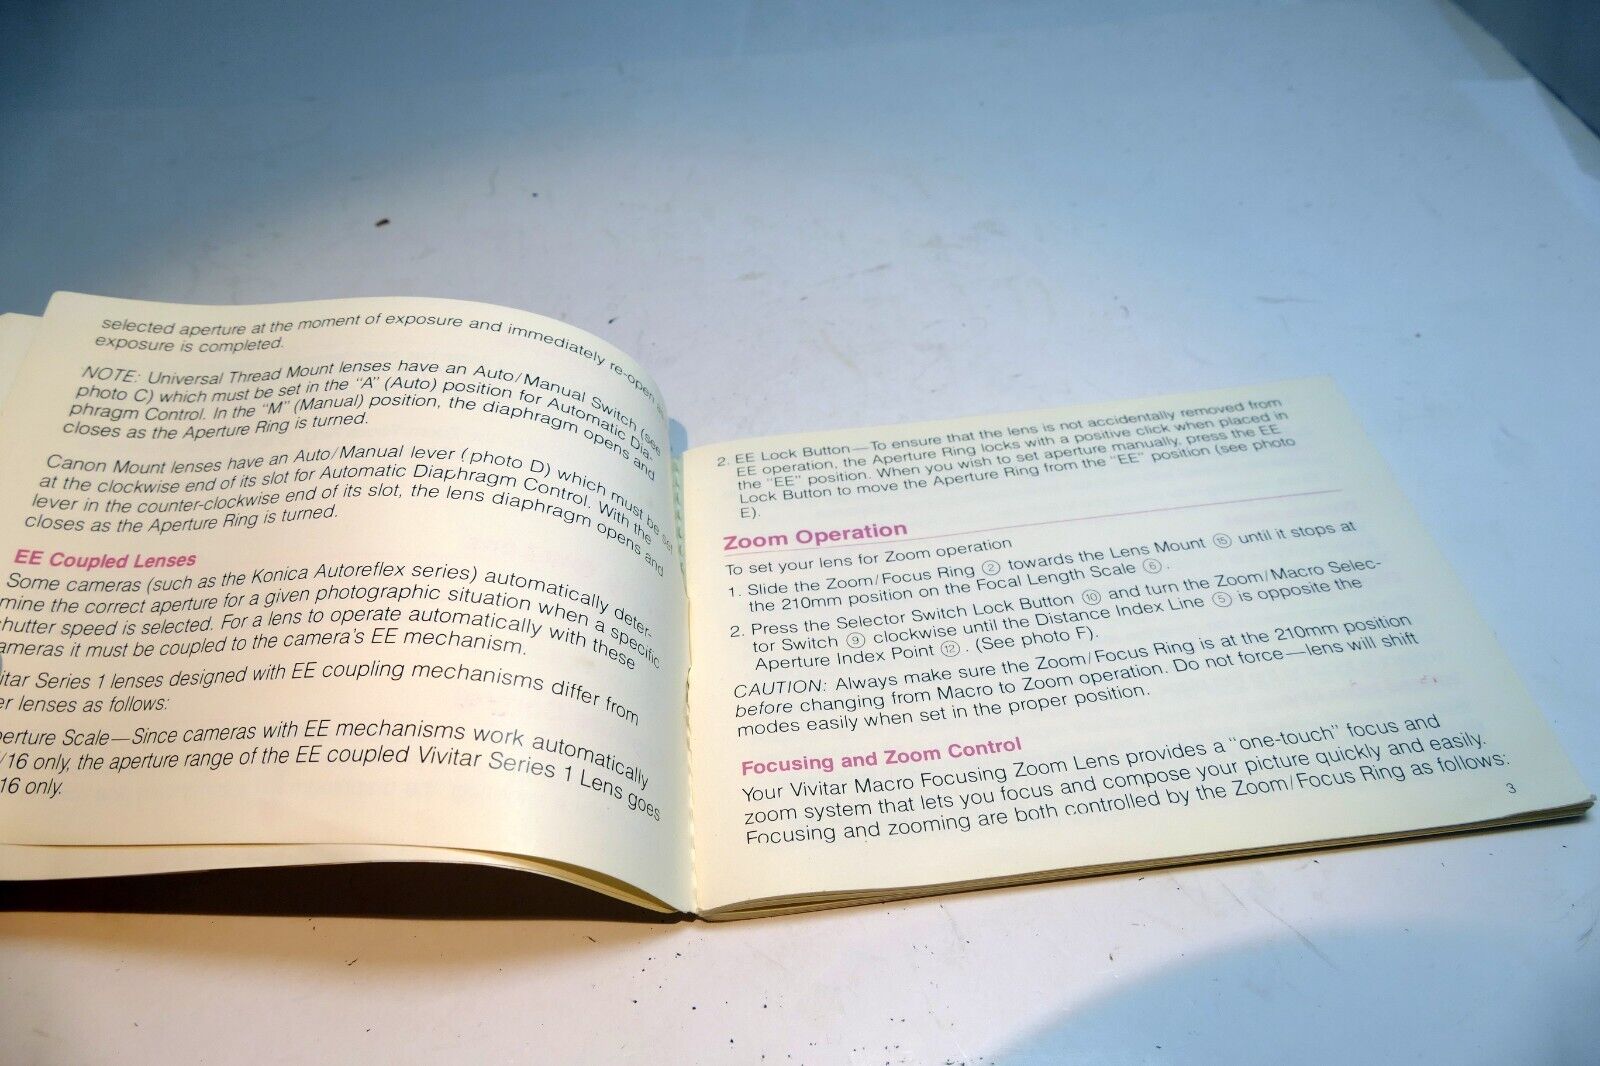 selected aperture at the moment of exposure and immediately re-open as
exposure is completed.
NOTE: Universal Thread Mount lenses have an Auto/Manual Switch (see
photo C) which must be set in the "A" (Auto) position for Automatic Dia-
phragm Control. In the "M" (Manual) position, the diaphragm opens and
closes as the Aperture Ring is turned.
Canon Mount lenses have an Auto/Manual lever (photo D) which must be set
at the clockwise end of its slot for Automatic Diaphragm Control. With the
lever in the counter-clockwise end of its slot, the lens diaphragm opens and
closes as the Aperture Ring is turned.
EE Coupled Lenses
Some cameras (such as the Konica Autoreflex series) automatically deter-
mine the correct aperture for a given photographic situation when a specific
hutter speed is selected. For a lens to operate automatically with these
ameras it must be coupled to the camera's EE mechanism.
itar Series 1 lenses designed with EE coupling mechanisms differ from
er lenses as follows:
perture Scale—Since cameras with EE mechanisms work automatically
/16 only, the aperture range of the EE coupled Vivitar Series 1 Lens goes
16 only.
2. EE Lock Button—To ensure that the lens is not accidentally removed from
EE operation, the Aperture Ring locks with a positive click when placed in
the "EE" position. When you wish to set aperture manually, press the EE
Lock Button to move the Aperture Ring from the "EE" position (see photo
E).
Zoom Operation
To set your lens for Zoom operation
1. Slide the Zoom/Focus Ring ② towards the Lens Mount ⑮ until it stops at
the 210mm position on the Focal Length Scale ⑥.
2. Press the Selector Switch Lock Button ⑩ and turn the Zoom/Macro Selec-
tor Switch ⑨ clockwise until the Distance Index Line ⑤ is opposite the
Aperture Index Point ⑫. (See photo F).
CAUTION: Always make sure the Zoom/Focus Ring is at the 210mm position
before changing from Macro to Zoom operation. Do not force—lens will shift
modes easily when set in the proper position.
Focusing and Zoom Control
Your Vivitar Macro Focusing Zoom Lens provides a "one-touch" focus and
zoom system that lets you focus and compose your picture quickly and easily.
Focusing and zooming are both controlled by the Zoom/Focus Ring as follows:
3